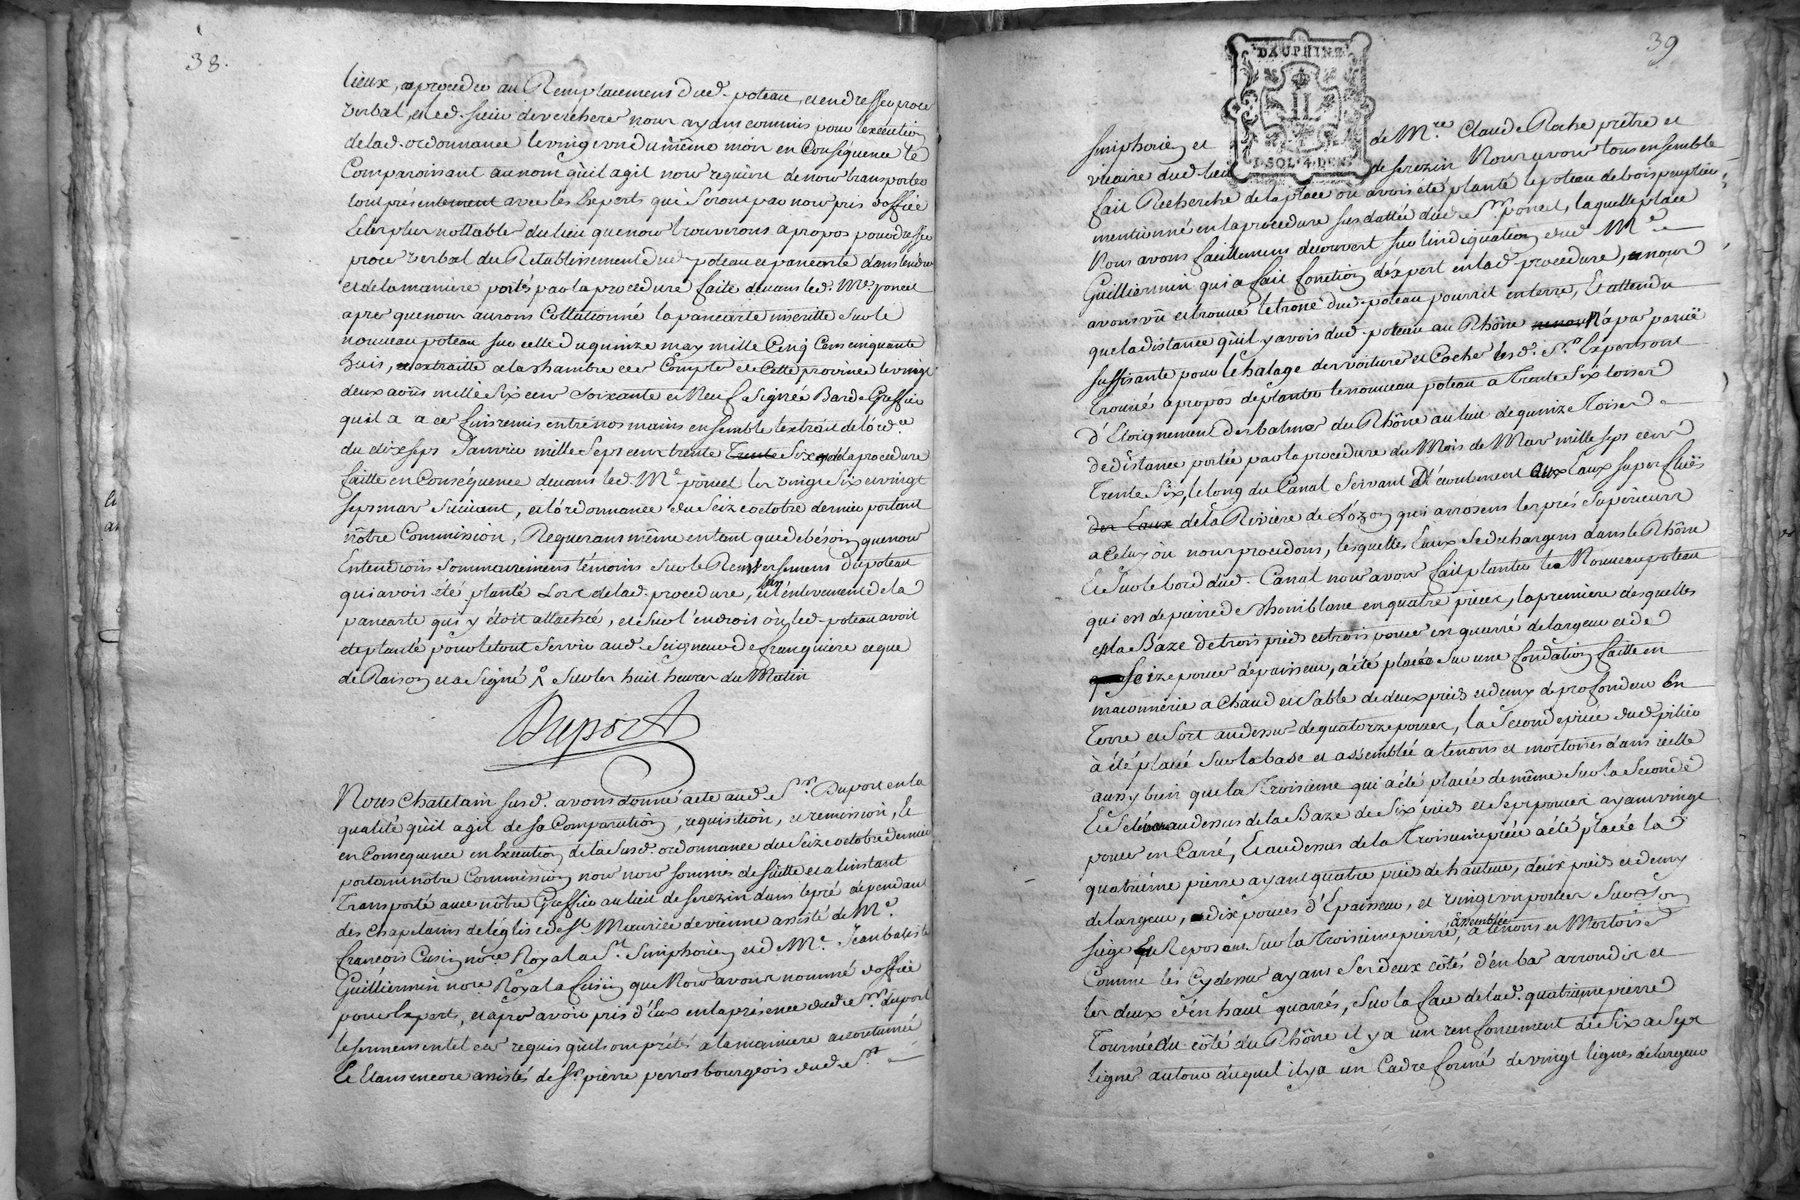 38.
lieux, a proceder au Remplacement dud. poteau, et en dresser proces
verbal, et led. sieur de verchere nous ayant commis pour l'execution
de lad. ordonnance le vingt un du même mois en Conséquence le
Comparoissant au nom qu'il agit nous requiert de nous transporter
tout présentement avec les Experts qui Seront par nous pris d'office
et les plus nottables du lieu que nous trouverons a propos pour dresser
proces verbal du Retablissement dud. poteau et pancarte dans l'endroit
et de la maniere portés par la procedure faite devant led. Me poncet
apres que nous aurons Collationné la pancarte inscritte sur le
nouveau poteau sur celle du quinze may mille Cinq Cens cinquante
huit, extraitte a la chambre des Comptes de Cette province le vingt
deux aoüst mille Six cens Soixante et Neuf Signée Barde Greffier
qu'il a a ces fins remis entre nos mains ensemble l'extrait de l'ord.ce
du dix sept Janvier mille Sept cens trente Trente Six et de la procedure
faitte en Conséquence devant led. Me poncet les vingt Six et vingt
sept mars Suivant, et l'ordonnance du Seize octobre dernier portant
nôtre Commission, Requerant même en tant que de bésoin que nous
Entendions Sommairement témoins sur le Renversement du poteau
qui avoit été planté Lors de lad. procedure, sur l'enlevement de la
pancarte qui y étoit attachée, et Sur l'endroit où led. poteau avoit
eté planté pour le tout Servir aud. Seigneur de franquiere ce que
de Raison et a Signé Sur les huit heures du Matin
Duport
Nous Chatelain susd. avons donné acte aud. Sr. Duport en la
qualité qu'il agit de sa Comparution, requisition, et remission, Et
en Consequence en Execution de la Susd. ordonnance du Seize octobre dernier
portant nôtre Commission nous nous sommes de suitte et a l'instant
Transporté avec nôtre Greffier au lieu de serezin dans le pré dépendant
des Chapelains de l'église de St. Maurice de vienne assisté de Me.
françois Cusin nore. Royal a St. Simphorien et de Me. Jean batiste
Guilliermin nore. Royal a feisin que Nous avons nommé d'office
pour Experts, et apres avoir pris d'Eux en la présence dud. Sr. duport
le serment en tel cas requis qu'ils ont prêté a la maniere accoutumée
Et Etant encore assistés de Sr. pierre perros bourgeois dud. St.
39
DAUPHINE
II
1. SOL. 4. DEN.
simphorien et de Mre. Claude Roche prêtre et
vicaire dud. lieu de serezin Nous avons tous ensemble
fait Recherche de la place ou avoit été planté le poteau de bois peuplier
mentionné en la procedure sus dattée dud. Sr. poncet, laquelle place
Nous avons facillement decouvert sur l'indiquation dud. Me.
Guilliermin qui a fait fonction d'éxpert en lad. procedure, nous
avons vû et trouvé le tronc dud. poteau pourrit en terre, Et attendu
que la distance qu'il y avoit dud. poteau au Rhône N'a pas paruë
suffisante pour le halage des voitures et Coches lesd. Srs. Experts ont
Trouvé a propos de planter le nouveau poteau a Trente Six toises
d'Eloignement des balmes du Rhône au lieu de quinze Toises
de distance portée par la procedure du Mois de Mars mille sept cens
Trente Six, le long du Canal Servant d'ecoulement aux Eaux superfluës
des Eaux de la Riviere de L'ozon qui arrosent les prés Superieurs
a Celuy où nous procedons, lesquelles Eaux Se dechargent dans le Rhône
Et Sur le bord dud. Canal nous avons fait planter le Nouveau poteau
qui est de pierre de choin blanc en quatre pieces, la premiere desquelles
est la Baze de trois pieds et trois pouces en quarré de largeur et de
Seize pouces d'épaisseur, a été placée sur une fondation faitte en
maconnerie a Chaud et Sable de deux pieds et demy de profondeur En
Terre et Sort au dessus de quatorze pouces, la Seconde piece dud. pilier
à été placée Sur la base et assemblée a tenons et mortoises dans icelle
aussy bien que la Troisieme qui a été placée de même Sur la Seconde
Et S'éleve au dessus de la Baze de Six pieds et Sept pouces ayant vingt
pouces en Carré, Et au dessus de la Troisieme piece a été placée la
quatriéme pierre ayant quatre pieds de hauteur, deux pieds et demy
de largeur, dix pouces d'Epaisseur, et vingt un pouces Sur Son
siége Et Repos Sur la Troisieme pierre, assemblée a tenons et Mortoises
Comme les Cy dessus ayant Ses deux côtés d'en bas arrondis et
les deux d'en haut quarrés, Sur la face de lad. quatrieme pierre
Tournée du côté du Rhône il y a un renfoncement de Six a Sept
lignes autour duquel il y a un Cadre formé de vingt lignes de largeur